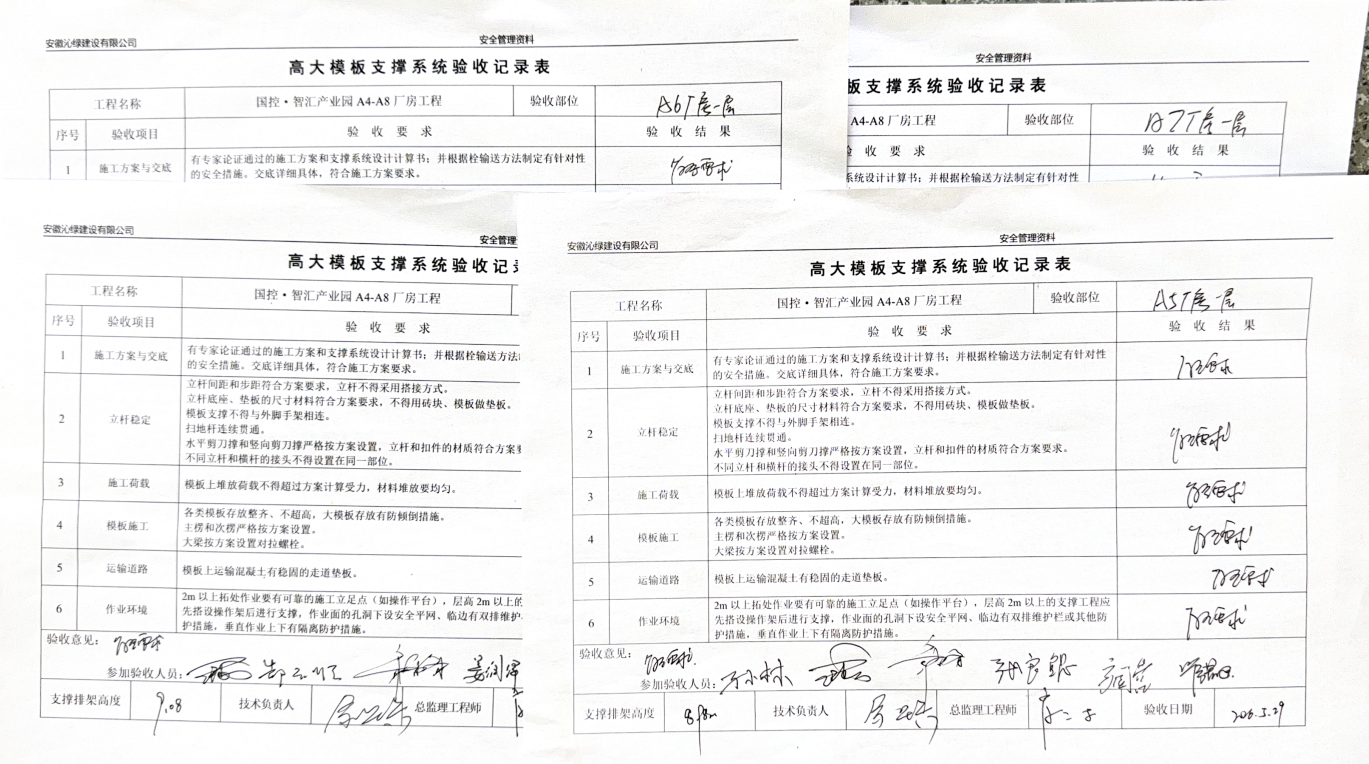 安徽沁绿建设有限公司
安全管理资料
高大模板支撑系统验收记录表
工程名称 国控·智汇产业园 A4-A8 厂房工程 验收部位 A6厂房一层
序号 验收项目 验 收 要 求 验 收 结 果
1 施工方案与交底 有专家论证通过的施工方案和支撑系统设计计算书；并根据栓输送方法制定有针对性
的安全措施。交底详细具体，符合施工方案要求。 符合要求
安全管理资料
板支撑系统验收记录表
A4-A8 厂房工程 验收部位 A7厂房一层
验 收 要 求 验 收 结 果
系统设计计算书；并根据栓输送方法制定有针对性
安徽沁绿建设有限公司
安全管理
高大模板支撑系统验收记
工程名称 国控·智汇产业园 A4-A8 厂房工程
序号 验收项目 验 收 要 求
1 施工方案与交底 有专家论证通过的施工方案和支撑系统设计计算书；并根据栓输送方法
的安全措施。交底详细具体，符合施工方案要求。
2 立杆稳定 立杆间距和步距符合方案要求，立杆不得采用搭接方式。
立杆底座、垫板的尺寸材料符合方案要求，不得用砖块、模板做垫板。
模板支撑不得与外脚手架相连。
扫地杆连续贯通。
水平剪刀撑和竖向剪刀撑严格按方案设置，立杆和扣件的材质符合方案要
不同立杆和横杆的接头不得设置在同一部位。
3 施工荷载 模板上堆放荷载不得超过方案计算受力，材料堆放要均匀。
4 模板施工 各类模板存放整齐、不超高，大模板存放有防倾倒措施。
主楞和次楞严格按方案设置。
大梁按方案设置对拉螺栓。
5 运输道路 模板上运输混凝土有稳固的走道垫板。
6 作业环境 2m 以上拓处作业要有可靠的施工立足点（如操作平台），层高 2m 以上的
先搭设操作架后进行支撑，作业面的孔洞下设安全平网、临边有双排维护
护措施，垂直作业上下有隔离防护措施。
验收意见： 符合要求
参加验收人员：
支撑排架高度 9.08 技术负责人 总监理工程师
安徽沁绿建设有限公司
安全管理资料
高大模板支撑系统验收记录表
工程名称 国控·智汇产业园 A4-A8 厂房工程 验收部位 A5厂房一层
序号 验收项目 验 收 要 求 验 收 结 果
1 施工方案与交底 有专家论证通过的施工方案和支撑系统设计计算书；并根据栓输送方法制定有针对性
的安全措施。交底详细具体，符合施工方案要求。 符合要求
2 立杆稳定 立杆间距和步距符合方案要求，立杆不得采用搭接方式。
立杆底座、垫板的尺寸材料符合方案要求，不得用砖块、模板做垫板。
模板支撑不得与外脚手架相连。
扫地杆连续贯通。
水平剪刀撑和竖向剪刀撑严格按方案设置，立杆和扣件的材质符合方案要求。
不同立杆和横杆的接头不得设置在同一部位。 符合要求
3 施工荷载 模板上堆放荷载不得超过方案计算受力，材料堆放要均匀。 符合要求
4 模板施工 各类模板存放整齐、不超高，大模板存放有防倾倒措施。
主楞和次楞严格按方案设置。
大梁按方案设置对拉螺栓。 符合要求
5 运输道路 模板上运输混凝土有稳固的走道垫板。 符合要求
6 作业环境 2m 以上拓处作业要有可靠的施工立足点（如操作平台），层高 2m 以上的支撑工程应
先搭设操作架后进行支撑，作业面的孔洞下设安全平网、临边有双排维护栏或其他防
护措施，垂直作业上下有隔离防护措施。 符合要求
验收意见： 符合要求.
参加验收人员：
支撑排架高度 技术负责人 总监理工程师 验收日期